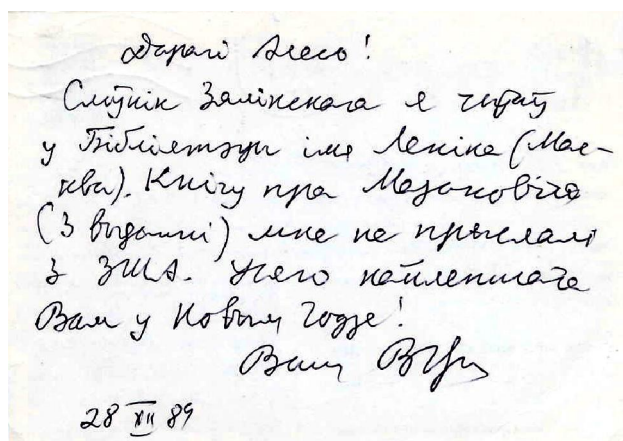 Дарагі Алесь!
Слоўнік Залінскага я чытаў
у Бібліятэцы імя Леніна (Мас-
ква). Кнігу пра
(3 выданні) мне не прыслалі
з ЗША. Усяго найлепшага
Вам у Новым Годзе!
Ваш
28 XII 89